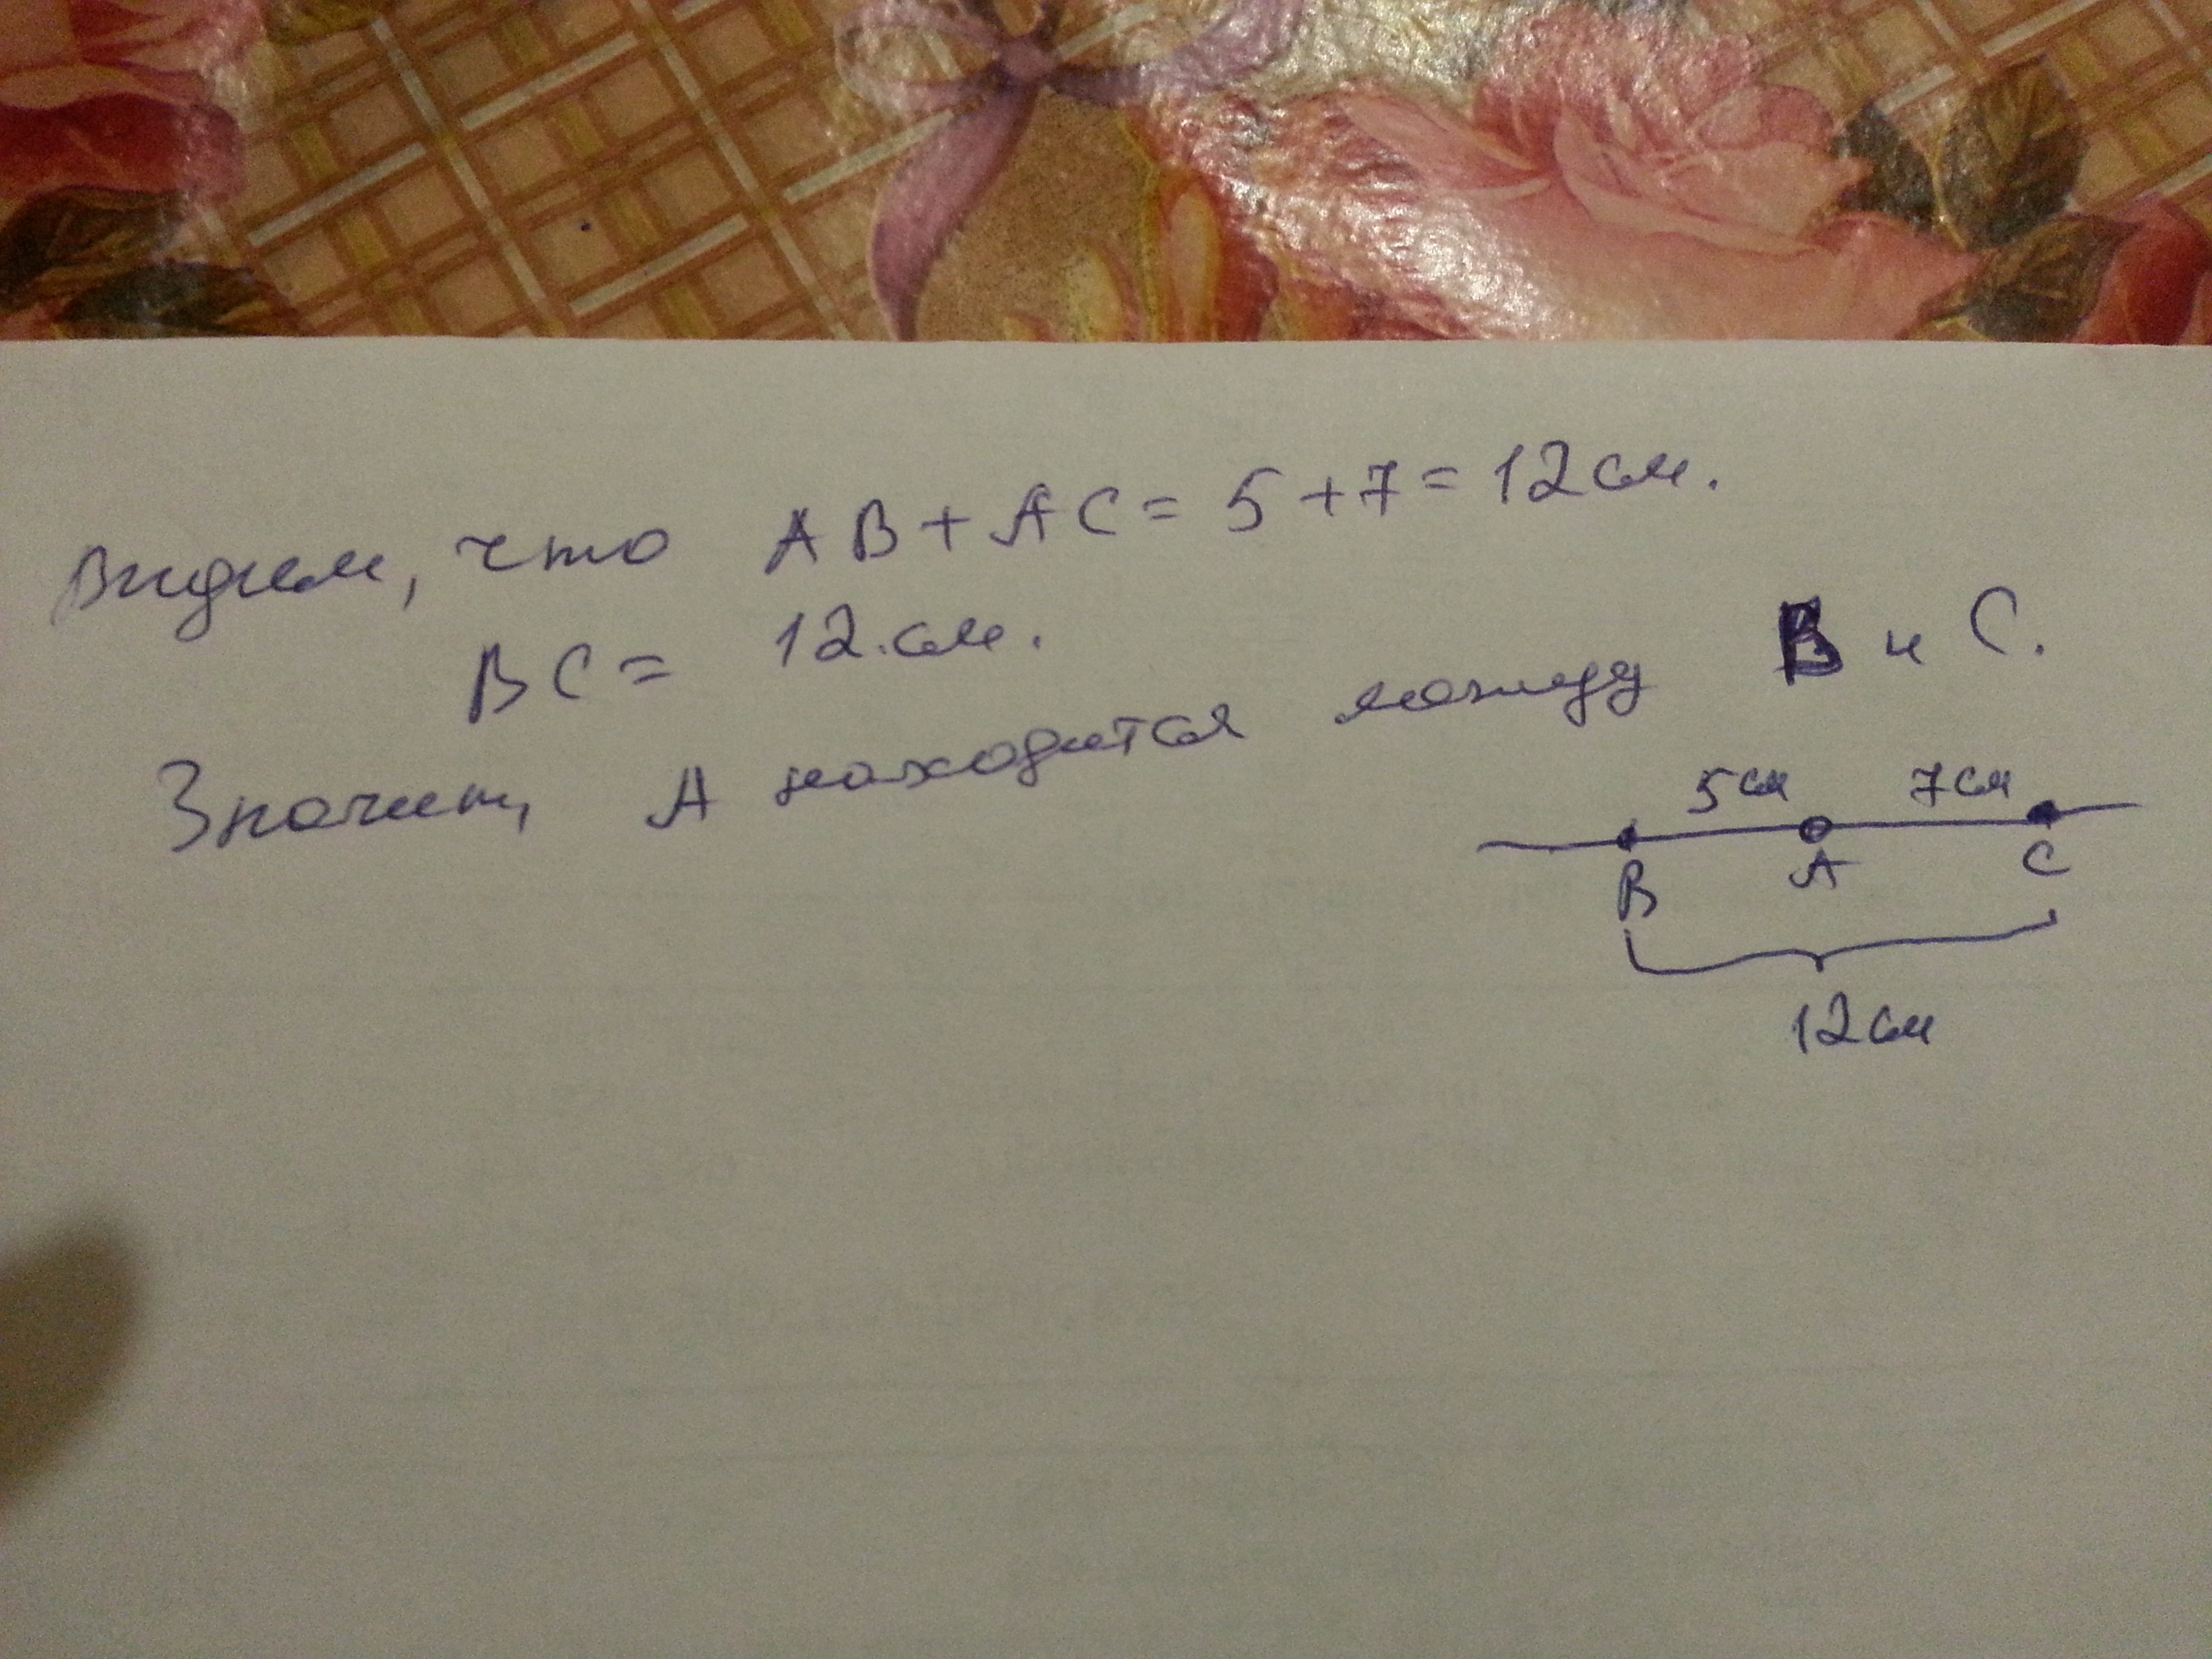 Видим, что AB + AC = 5 + 7 = 12 см.
BC = 12 см.
Значит, A находится между B и C.
5 см 7 см
B A C
12 см